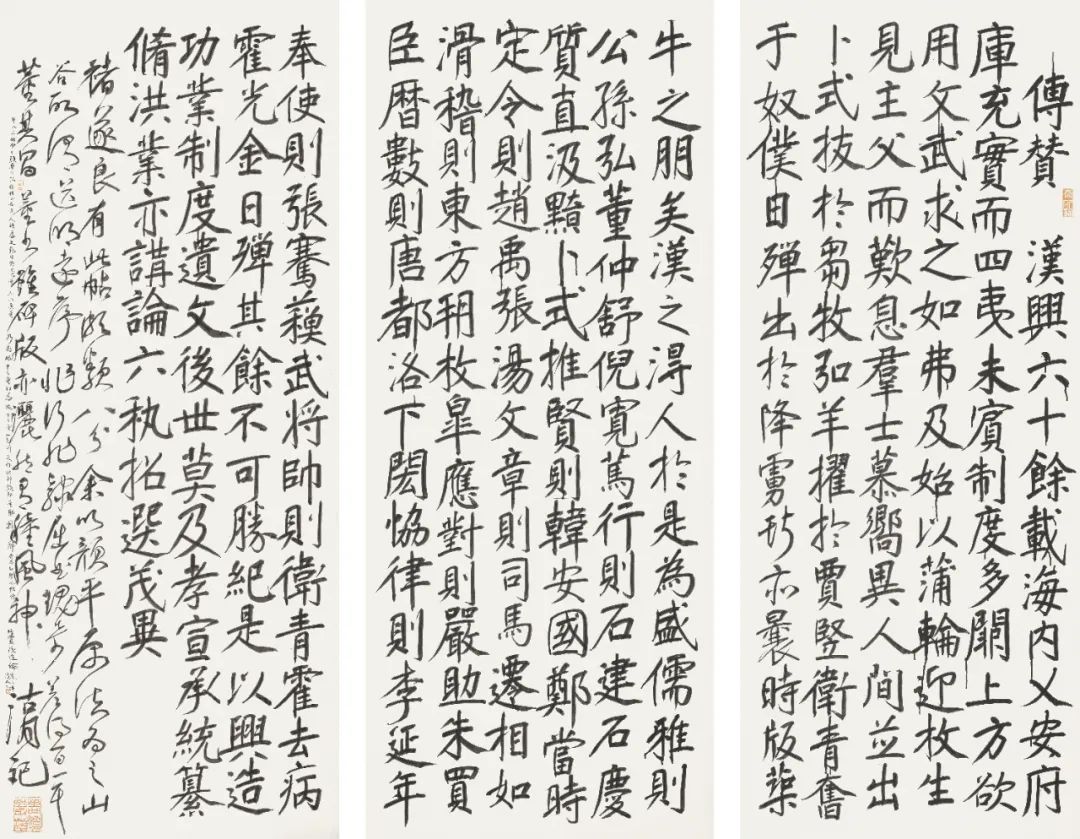 傳贊 漢興六十餘載海内乂安府
庫充實而四夷未賓制度多闕上方欲
用文武求之如弗及始以蒲輪迎枚生
見主父而歎息羣士慕嚮異人間並出
卜式拔於芻牧弘羊擢於賈竪衛青奮
于奴僕日殫出於降虜斯亦曩時版築
牛之朋矣漢之得人於是為盛儒雅則
公孫弘董仲舒倪寬篤行則石建石慶
質直汲黯卜式推賢則韓安國鄭當時
定令則趙禹張湯文章則司馬遷相如
滑稽則東方朔枚皋應對則嚴助朱買
臣曆數則唐都洛下閎恊律則李延年
奉使則張騫蘓武將帥則衛青霍去病
霍光金日殫其餘不可勝紀是以興造
功業制度遺文後世莫及孝宣承統纂
脩洪業亦講論六執招選茂異
褚遂良有此帖頗類八分余以顏平原法為之山
谷所謂送明遠序非行非隸屈曲瑰奇差得百一耳
董其昌 董書雖碑版亦麗然有風神 記